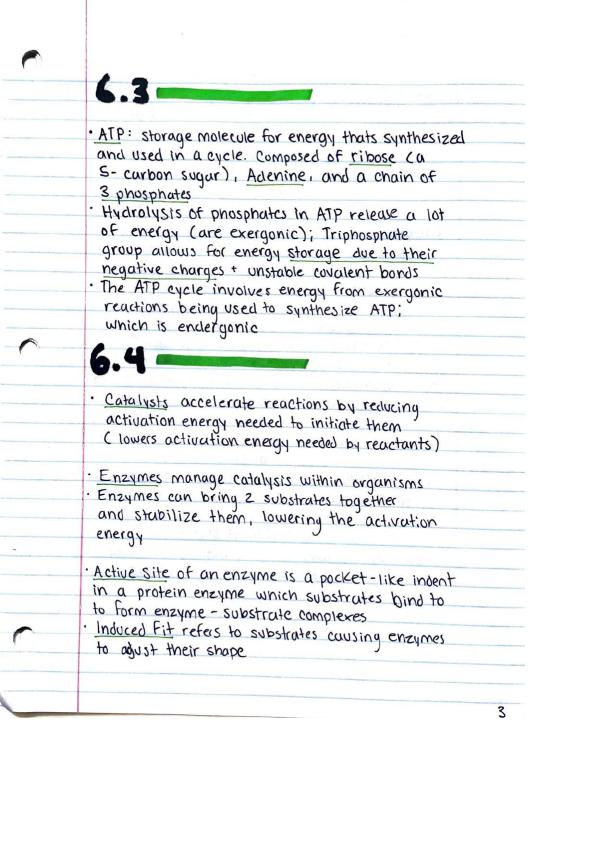 6.3
• ATP: storage molecule for energy thats synthesized
and used in a cycle. Composed of ribose (a
5-carbon sugar), Adenine, and a chain of
3 phosphates
• Hydrolysis of phosphates in ATP release a lot
of energy (are exergonic); Triphosphate
group allows for energy storage due to their
negative charges + unstable covalent bonds
• The ATP cycle involves energy from exergonic
reactions being used to synthesize ATP;
which is endergonic
6.4
• Catalysts accelerate reactions by reducing
activation energy needed to initiate them
(lowers activation energy needed by reactants)
• Enzymes manage catalysis within organisms
• Enzymes can bring 2 substrates together
and stabilize them, lowering the activation
energy
• Active Site of an enzyme is a pocket-like indent
in a protein enzyme which substrates bind to
to form enzyme-substrate complexes
• Induced Fit refers to substrates causing enzymes
to adjust their shape
3